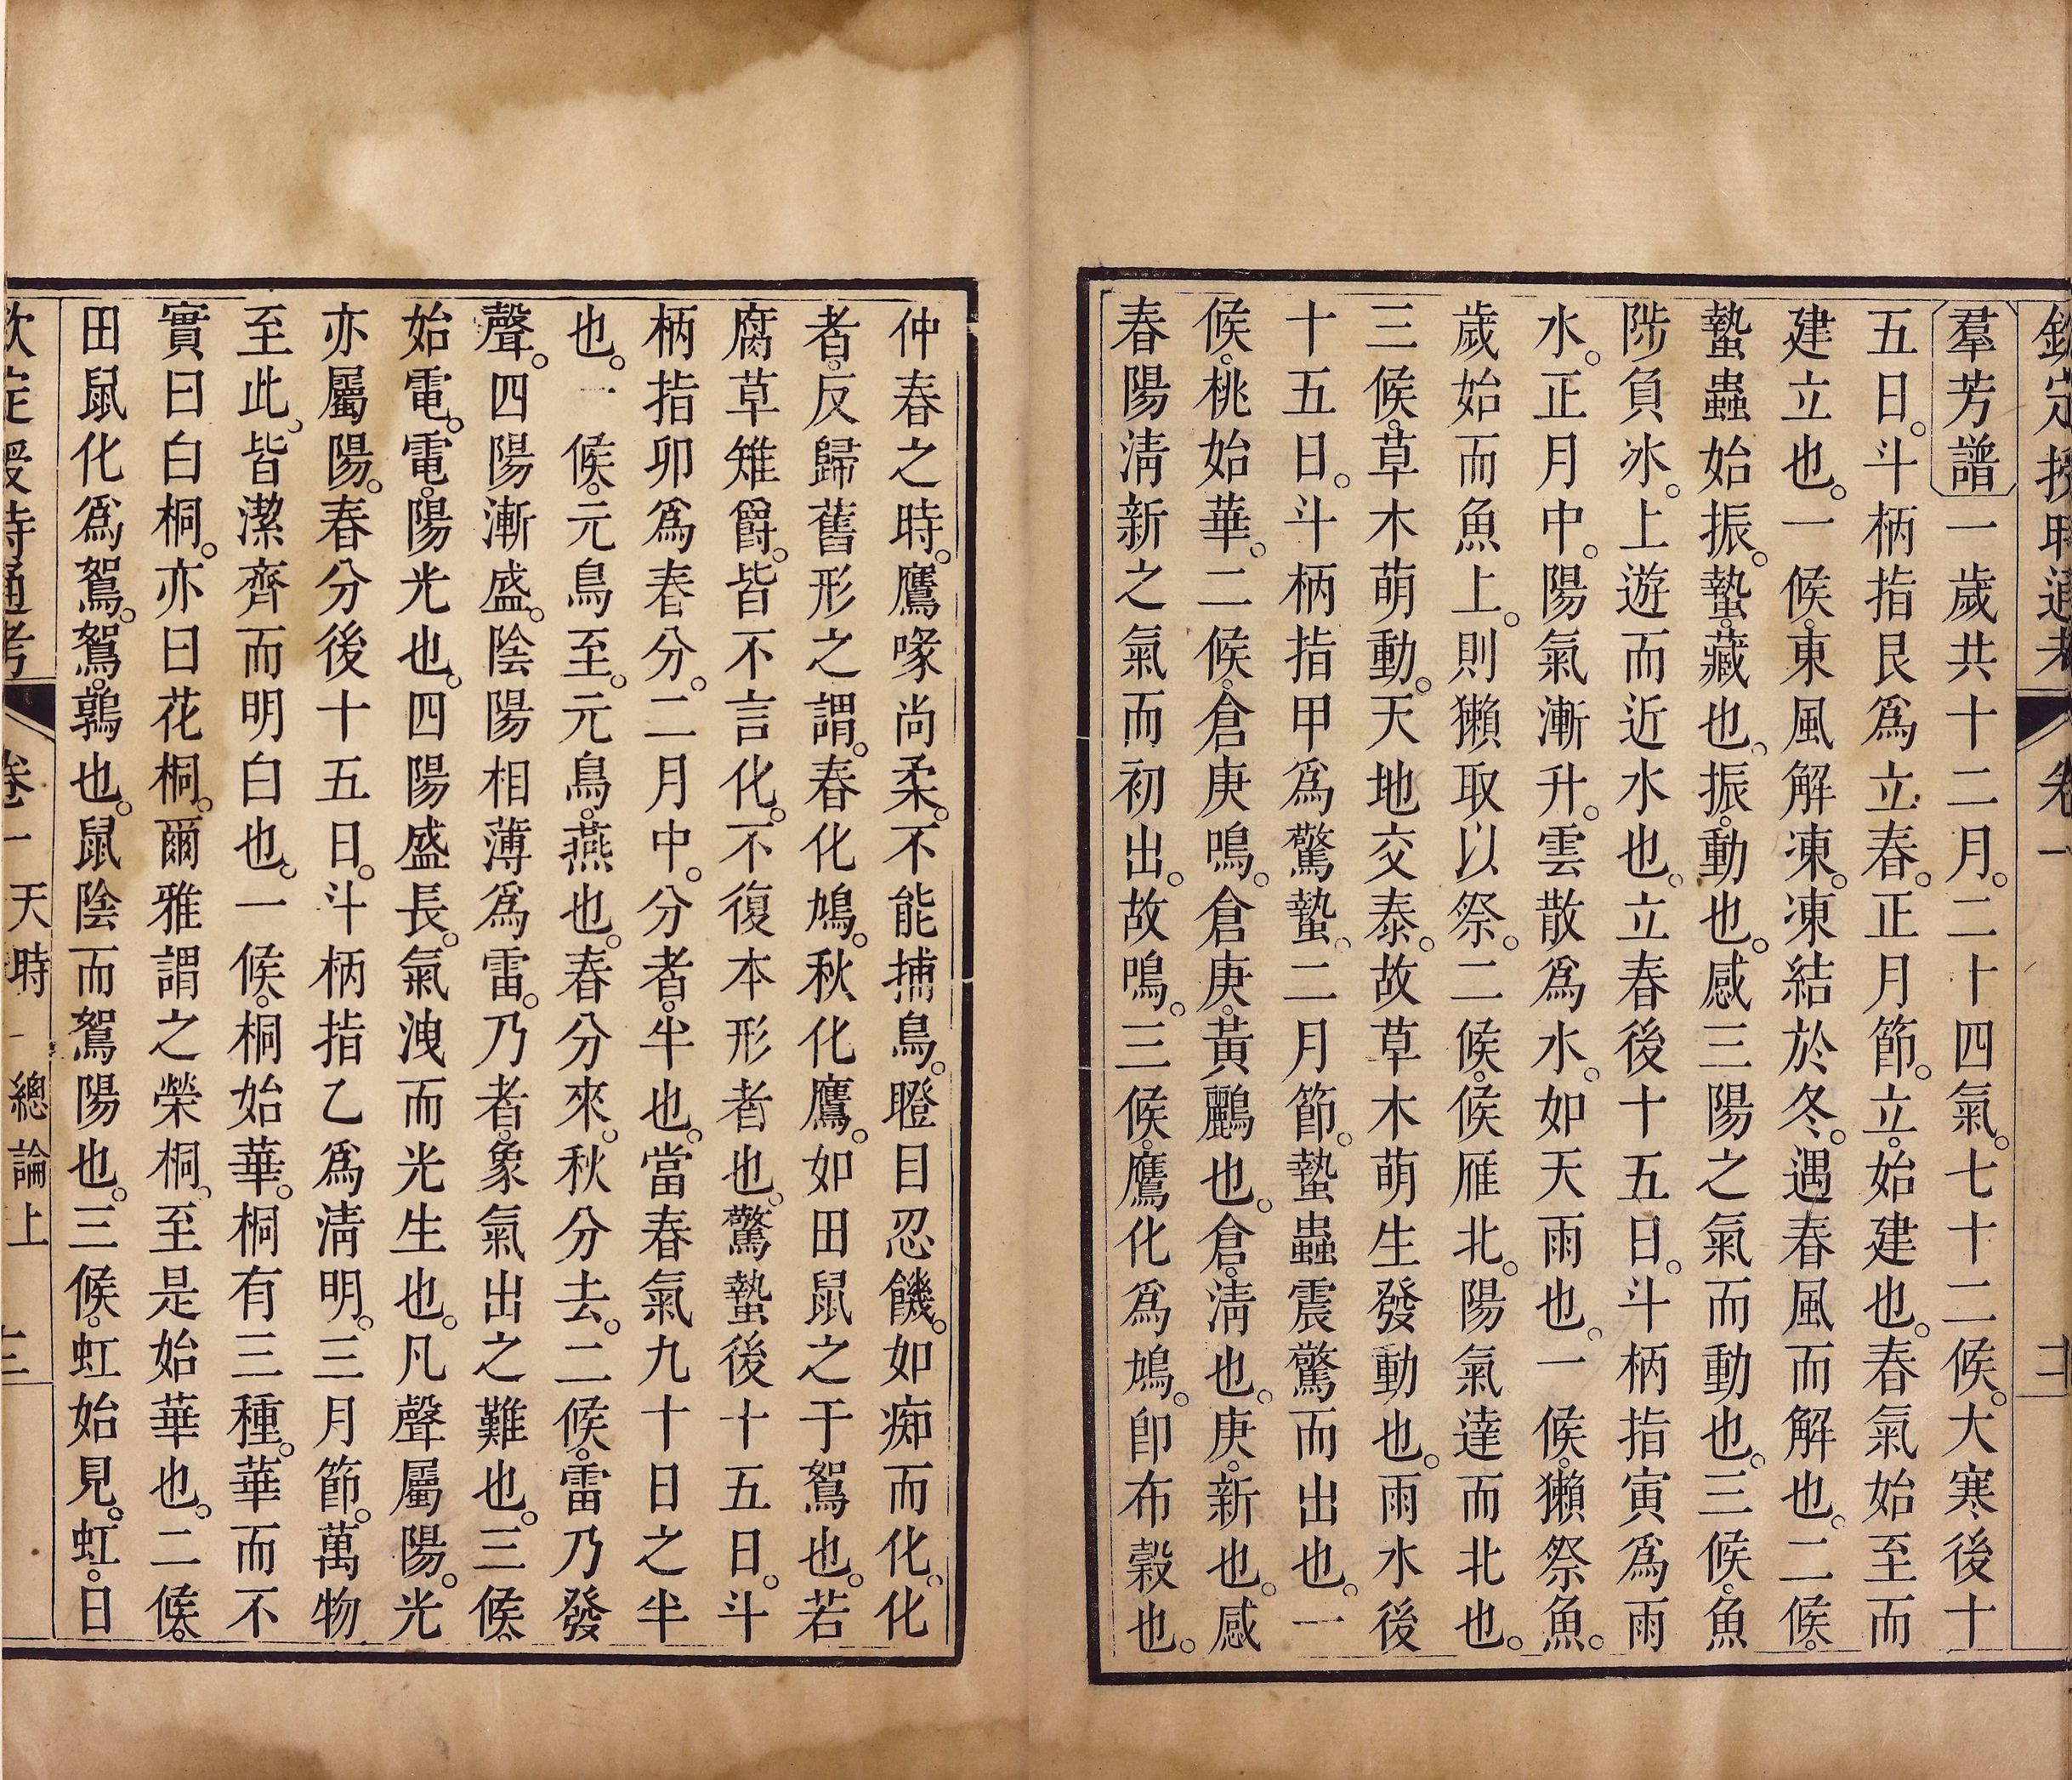 欽定授時通考 卷一 三
羣芳譜一歲共十二月。二十四氣。七十二候。大寒後十
五日。斗柄指艮爲立春。正月節。立。始建也。春氣始至而
建立也。一候。東風解凍。凍結於冬。遇春風而解也。二候。
蟄蟲始振。蟄。藏也。振。動也。感三陽之氣而動也。三候。魚
陟負冰。上遊而近水也。立春後十五日。斗柄指寅爲雨
水。正月中。陽氣漸升。雲散爲水。如天雨也。一候。獺祭魚。
歲始而魚上。則獺取以祭。二候。候雁北。陽氣達而北也。
三候。草木萌動。天地交泰。故草木萌生發動也。雨水後
十五日。斗柄指甲爲驚蟄。二月節。蟄蟲震驚而出也。一
候。桃始華。二候。倉庚鳴。倉庚。黃鸝也。倉。淸也。庚。新也。感
春陽淸新之氣而初出。故鳴。三候。鷹化爲鳩。卽布穀也。
仲春之時。鷹喙尚柔。不能捕鳥。瞪目忍饑。如痴而化。化
者。反歸舊形之謂。春化鳩。秋化鷹。如田鼠之于鴽也。若
腐草雉爵。皆不言化。不復本形者也。驚蟄後十五日。斗
柄指卯爲春分。二月中。分者。半也。當春氣九十日之半
也。一候。元鳥至。元鳥。燕也。春分來。秋分去。二候。雷乃發
聲。四陽漸盛。陰陽相薄爲雷。乃者。象氣出之難也。三候。
始電。電。陽光也。四陽盛長。氣洩而光生也。凡聲屬陽。光
亦屬陽。春分後十五日。斗柄指乙爲淸明。三月節。萬物
至此。皆潔齊而明白也。一候。桐始華。桐有三種。華而不
實曰白桐。亦曰花桐。爾雅謂之榮桐。至是始華也。二候。
田鼠化爲鴽。鴽。鶉也。鼠陰而鴽陽也。三候。虹始見。虹。日
欽定授時通考 卷一 天時 總論上 三